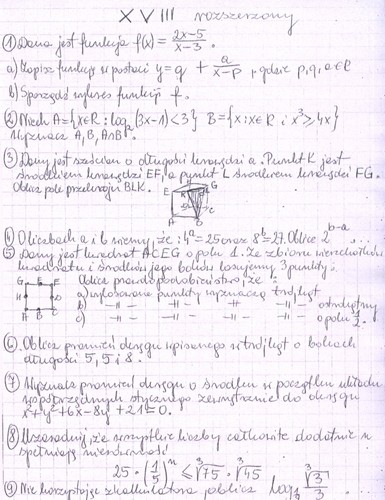 XVIII rozszerzony
① Dana jest funkcja f(x) = \frac{2x-5}{x-3}.
a) Zapisz funkcję w postaci y = q + \frac{a}{x-p}, gdzie p, q, a ∈ R
b) Sporządź wykres funkcji f.
② Niech A = {x∈R : log₂(3x-1) < 3} B = {x : x∈R i x³ ≥ 4x}
Wyznacz A, B, A∩B.
③ Dany jest sześcian o długości krawędzi a. Punkt K jest
środkiem krawędzi EF, a punkt L środkiem krawędzi FG.
Oblicz pole przekroju BLK.
E G
K
A B C
④ O liczbach a i b wiemy, że: 4ᵃ = 25 oraz 8ᵇ = 27. Oblicz 2^{b-a}
⑤ Dany jest kwadrat ACEG o polu 1. Ze zbioru wierzchołków
kwadratu i środków jego boków losujemy 3 punkty.
Oblicz prawdopodobieństwo, że:
a) wylosowane punkty wyznaczą trójkąt
b) —||— —||— —||— —||— ostrokątny
c) —||— —||— —||— —||— o polu ½.
G F E
H D
A B C
⑥ Oblicz promień okręgu wpisanego w trójkąt o bokach
długości 5, 5 i 8.
⑦ Wyznacz promień okręgu o środku w początku układu
współrzędnych stycznego zewnętrznie do okręgu
x² + y² + 6x - 8y + 21 = 0.
⑧ Uzasadnij, że wszystkie liczby całkowite dodatnie n
spełniają nierówność
25 · (\frac{1}{5})ⁿ ≤ ∛75 · ∛45
⑨ Nie korzystając z kalkulatora, oblicz log₃